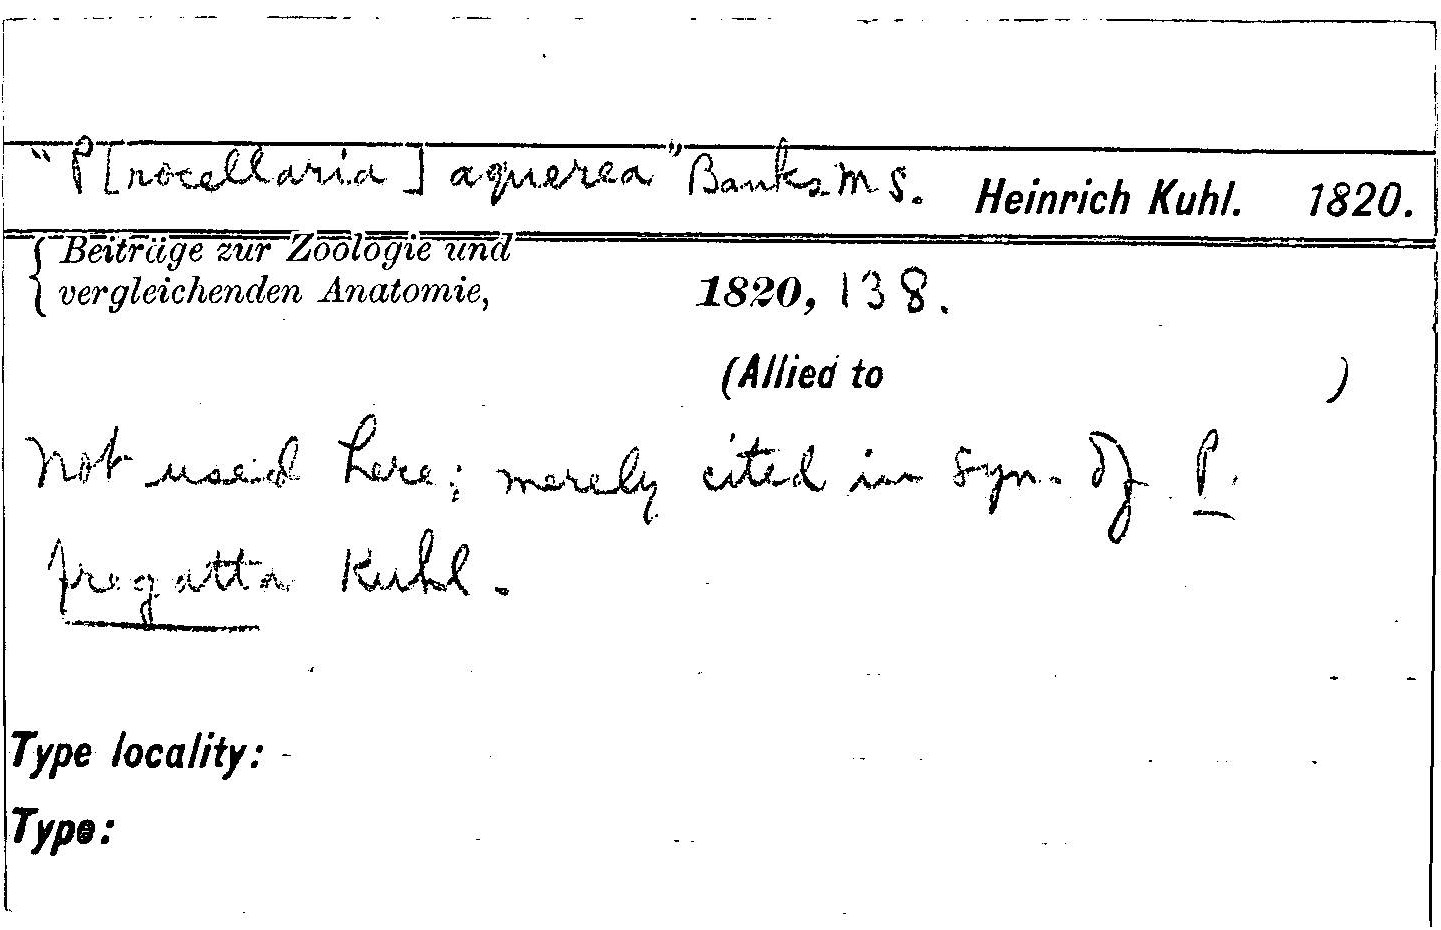 "P[rocellaria] aquerea" Banks MS. Heinrich Kuhl. 1820.
Beiträge zur Zoologie und
vergleichenden Anatomie, 1820, 138.
(Allied to )
Not used here; merely cited in syn. of P.
fregatta Kuhl.
Type locality:
Type: